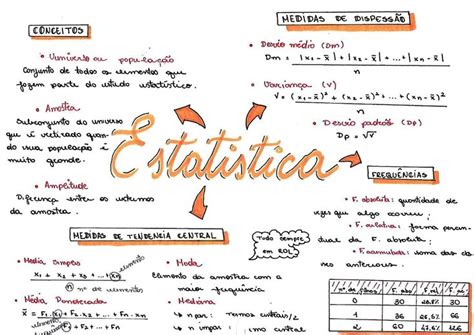 CONCEITOS
• Universo ou população
Conjunto de todos os elementos que
fazem parte do estudo estatístico.
• Amostra
Subconjunto do universo
que é retirado quan-
do sua população é
muito grande.
• Amplitude
Diferença entre os extremos
da amostra.
Estatística
MEDIDAS DE DISPESSÃO
• Desvio médio (Dm)
Dm = |x1 - x̄| + |x2 - x̄| + ... + |xn - x̄|
n
• Variança (V)
V = (x1 - x̄)² + (x2 - x̄)² + ... + (xn - x̄)²
n
• Desvio padrão (Dp)
Dp = √V
FREQUÊNCIAS
• F. absoluta: quantidade de
vezes que algo ocorreu;
• F. relativa: forma percen-
tual da F. absoluta;
• F. acumulada: soma das fs
anteriores.
Tudo sempre
em ROL
MEDIDAS DE TENDENCIA CENTRAL
• Média Simples
x1 + x2 + x3 + ... + xn
nº de elementos
• Média Ponderada
x̄ = F1.x1 + F2.x2 + ... Fn.xn
F1 + F2 + ... + Fn
• Moda
Elemento da amostra com a
maior frequência
• Mediana
↳ n par: romos central
↳ n ímpar: termo central
0 30
1 36
2